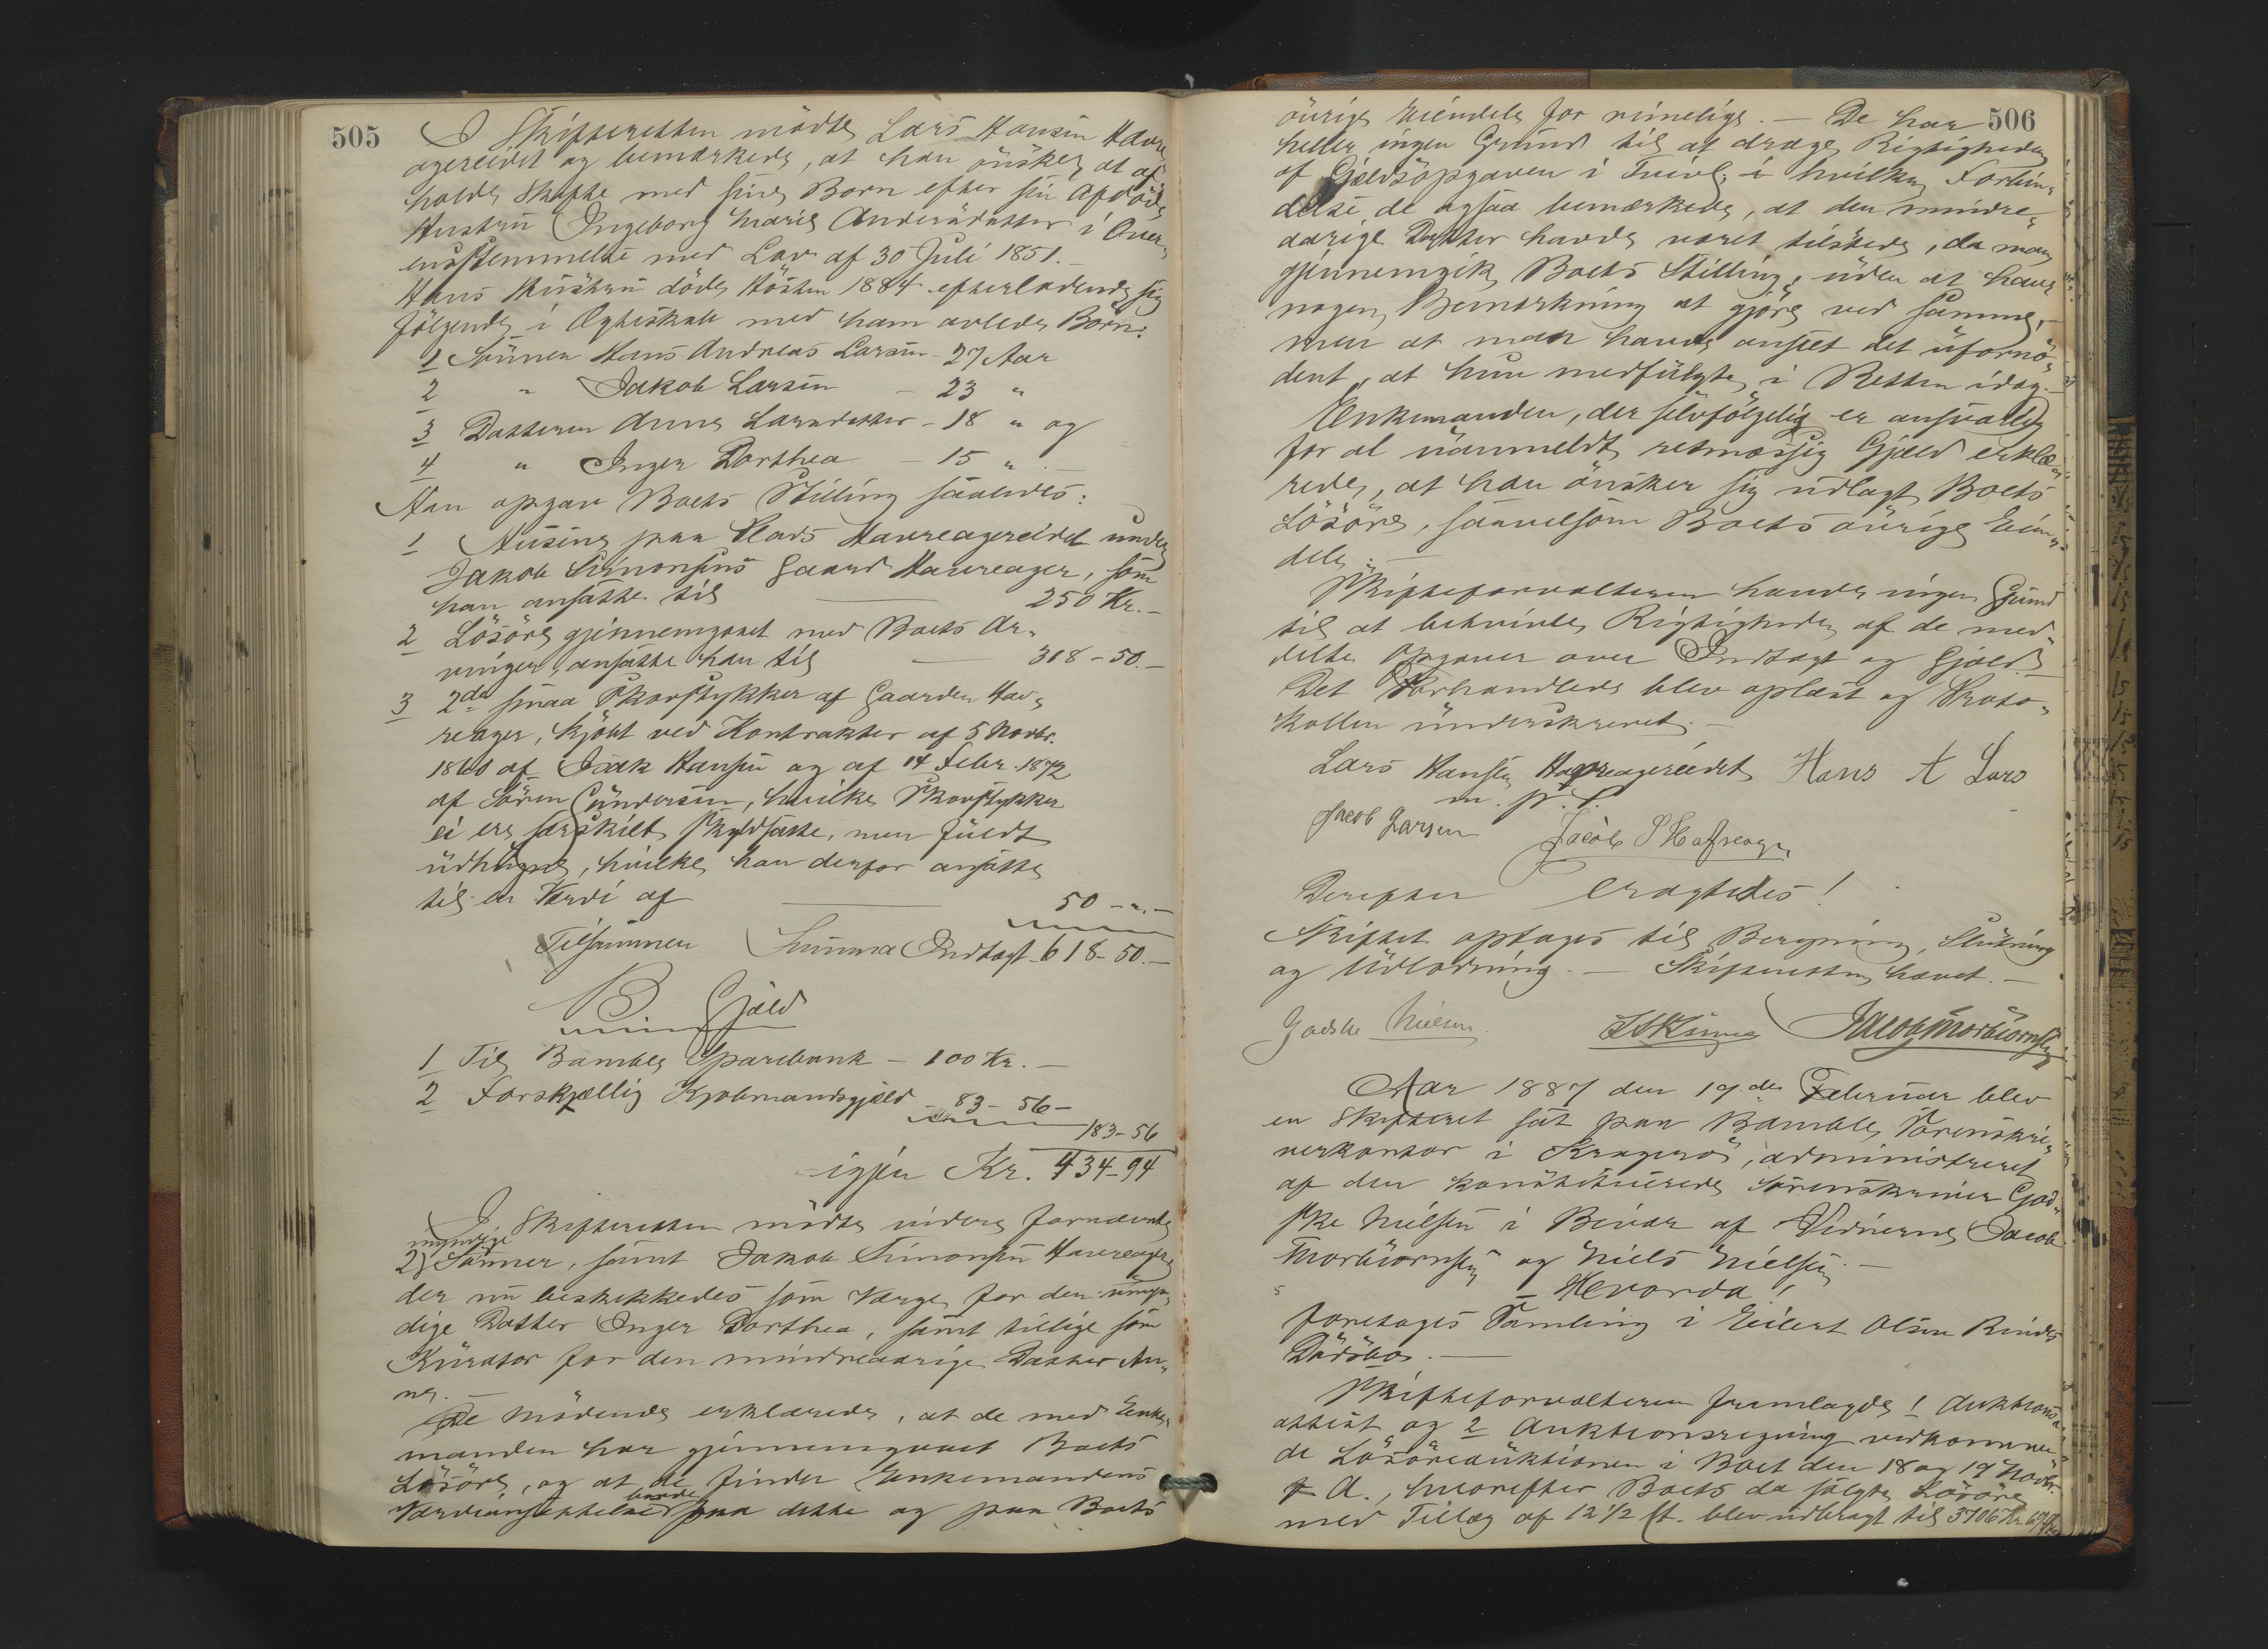 505
I Skifteretten mödte Lars Hansen Havre-
agereidet og bemærkede, at han önsker at af-
holde Skifte med sine Børn efter sin Afdöde
Hustru Ingeborg Marie Andersdatter i Over-
ensstemmelse med Lov af 30 Juli 1851.-
Hans Hustru döde Hösten 1884 efterladende sig
fölgende i Ægteskab med ham avlede Børn:
1 Sönnen Hans Andreas Larsen - 27 Aar
2 " Jakob Larsen - 23 "
3 Datteren Anne Larsdatter - 18 " og
4 " Inger Dorthea - 15 " -
Han opgav Boets Stilling saaledes:
1 Husene paa Plads Havreagereidet under
Jakob Simonsens Gaard Havreager, som
han ansatte til 250 Kr. -
2 Lösöre gjennemgaaet med Boets Ar-
vinger, ansatte han til 318 - 50. -
3 2de smaa Skovstykker af Gaarden Hav-
reager, kjöbt ved Kontrakter af 5 Novbr.
1860 af Isak Hansen og af 14 Febr. 1872
af Sören Gundersen, hvilke Skovstykker
ei er særskilt skyldsatte, men fuldt
udhugne, hvilke han derfor ansatte
til en Værdi af 50 - " -
Tilsammen Summa Indtægt 618 - 50. -
B Gjæld
1 Til Bamble Sparebank - 100 Kr. -
2 Forskjællig Kjøbmandsgjæld - 83 - 56 -
183 - 56
igjen Kr. 434 - 94
I Skifteretten mödte videre fornævnte
myndige
2 Sönner, samt Jakob Simonsen Havreager
der nu beskikkedes som Værge for den umyn-
dige Datter Inger Dorthea, samt tillige som
Kurator for den mindreaarige Datter An-
ne. -
De Mödende erklærede, at de med Enke-
manden har gjennemgaaet Boets
Lösöre, og at de finder Enkemandens
baade
Værdiansættelse paa dette og paa Boets
506
övrige Eiendele for rimelige. - De har
heller ingen Grund til at drage Rigtigheden
af Gjældsopgaven i Tvivl, i hvilken Forbin-
delse de ogsaa bemærkede, at den mindre-
aarige Datter havde været tilstede, da man
gjennemgik Boets Stilling, uden at have
nogen Bemærkning at gjöre ved samme, -
men at man havde anseet det ufornö-
dent, at hun medfulgte i Retten idag. -
Enkemanden, der selvfölgelig er ansvarlig
for al uanmeldt retmæssig Gjæld erklæ-
rede, at han önsker sig udlagt Boets
Lösöre, saavelsom Boets övrige Eien-
dele. -
Skifteforvalteren havde ingen Grund
til at betvivle Rigtigheden af de med-
delte Opgaver over Indtægt og Gjæld. -
Det Forhandlede blev oplæst og Proto-
kollen underskrevet. -
Lars Hansen Havreagereidet Hans A Lars
m. p. P.
Jacob Larsen Jacob S Hafreager
Derefter Eragtedes!
Skiftet optages til Beregning, Slutning
og Udlodning. - Skifteretten hævet. -
Godske Nielsen. Jacob Thorbiørnsen
Aar 1887 den 19de Februar blev
en Skifteret sat paa Bamble Sorenskri-
verkontor i Kragerø, administreret
af den konstituerede Sorenskriver God-
ske Nielsen i Bivær af Vidnerne Jacob
Thorbiørnsen og Niels Nielsen. -
Hvorda!
foretoges Samling i Eilert Olsen Rinde
Dödsbo. -
Skifteforvalteren fremlagde 1 Auktions-
attest og 2 Auktionsregning vedkommen-
de Lösöreauktionen i Boet den 18 og 19 Novbr.
f. A., hvorefter Boets da solgte Lösöre
med Tillæg af 12 1/2 pCt. blev udbragt til 3706 Kr.